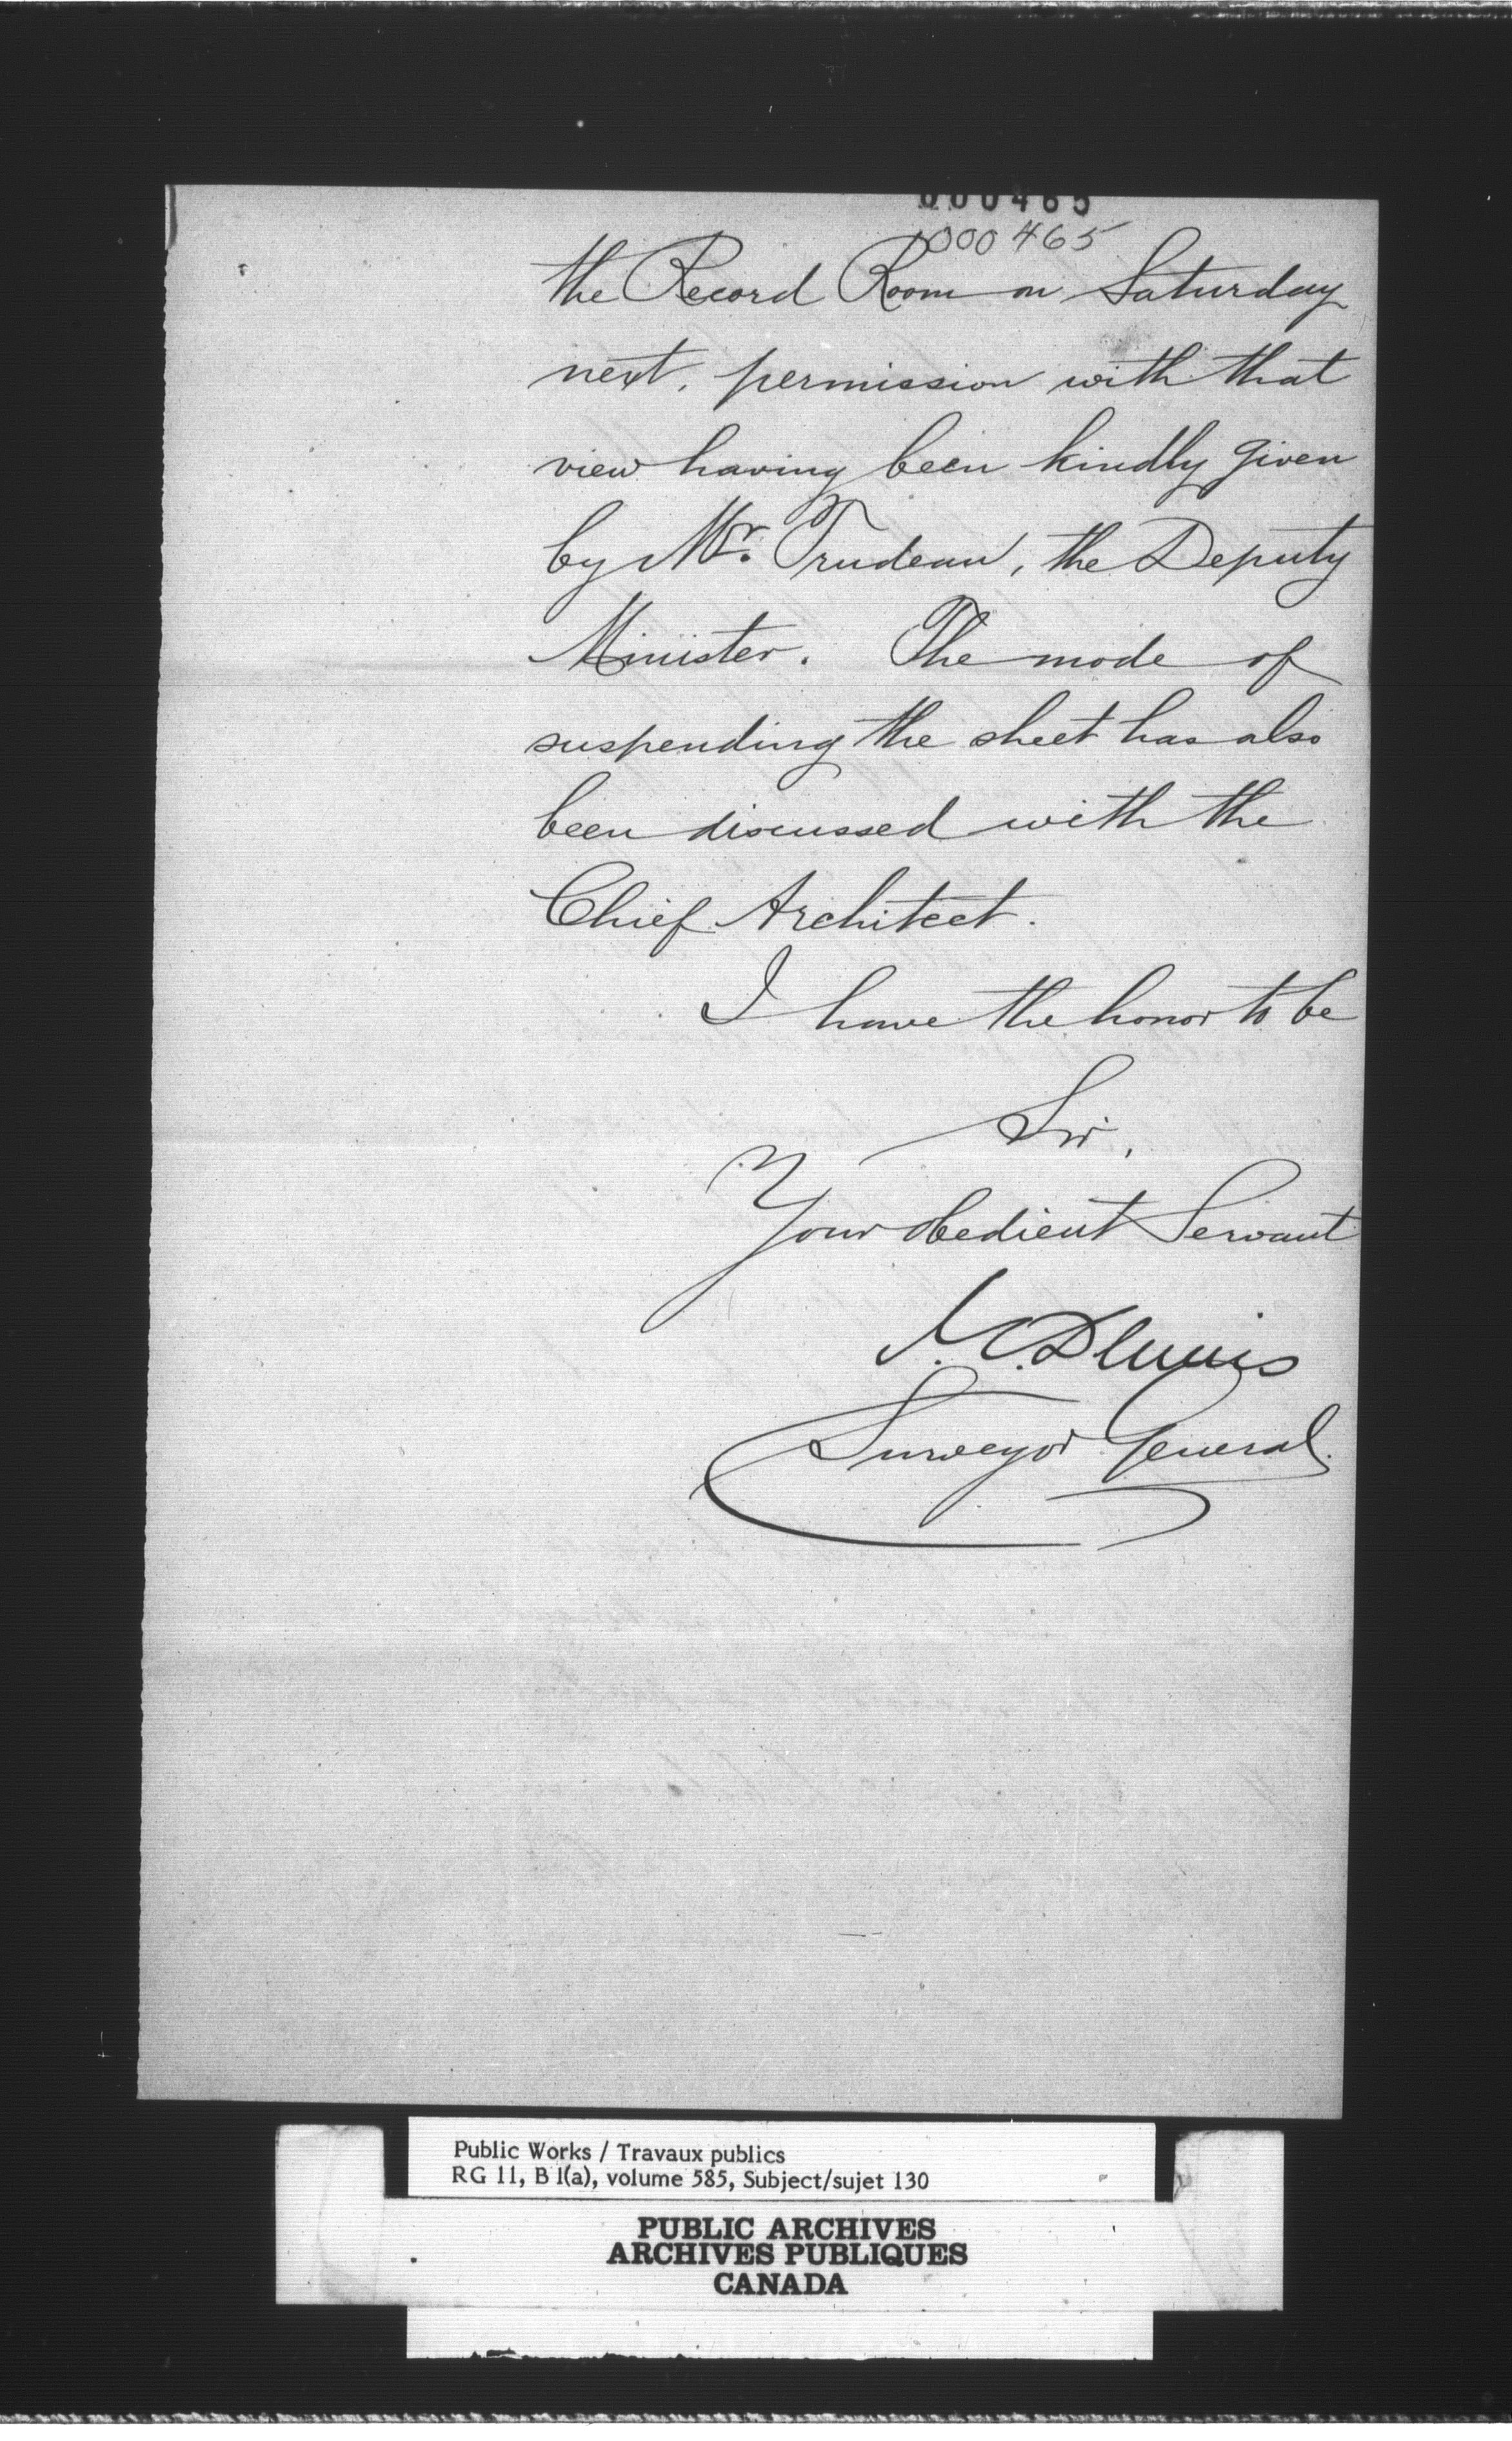 000465
000465
the Record Room on Saturday
next, permission with that
view having been kindly given
by Mr. Trudeau, the Deputy
Minister. The mode of
suspending the sheet has also
been discussed with the
Chief Architect.
I have the honor to be
Sir,
Your obedient Servant
J.S. Dennis
Surveyor General.
Public Works / Travaux publics
RG 11, B 1(a), volume 585, Subject/sujet 130
PUBLIC ARCHIVES
ARCHIVES PUBLIQUES
CANADA